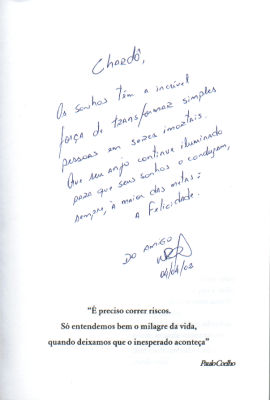 Chardô,
Os sonhos têm a incrível
força de transformar simples
pessoas em seres imortais.
Que seu anjo continue iluminado
para que seus sonhos o conduzam,
sempre, à maior das metas:
a Felicidade.
Do amigo
04/04/02
"É preciso correr riscos.
Só entendemos bem o milagre da vida,
quando deixamos que o inesperado aconteça"
Paulo Coelho